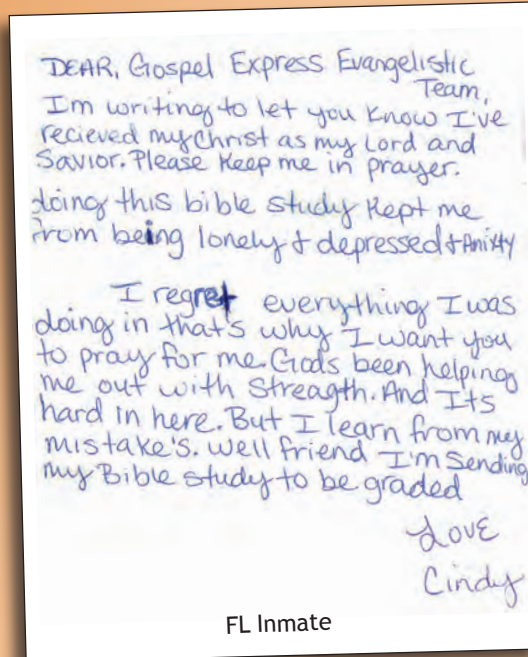 DEAR, Gospel Express Evangelistic
Team,
Im writing to let you know I've
recieved my Christ as my Lord and
Savior. Please Keep me in prayer.
doing this bible study Kept me
from being lonely & depressed & Anixty
I regret everything I was
doing in that's why I want you
to pray for me. Gods been helping
me out with Streagth. And Its
hard in here. But I learn from my
mistake's. well friend I'm Sending
my Bible study to be graded
Love
Cindy
FL Inmate